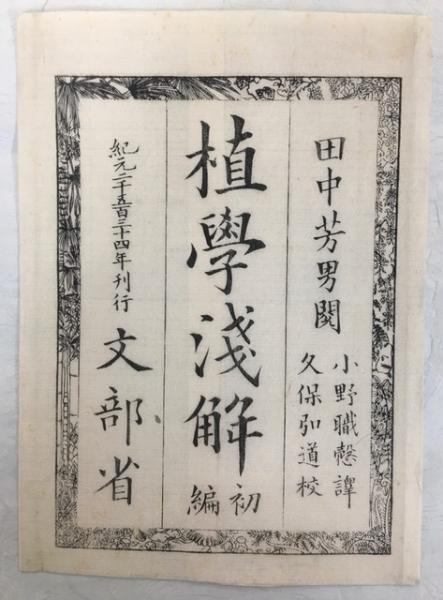 田中芳男閱
小野職愨譯
久保弘道校
植學淺解
初編
紀元二千五百三十四年刊行
文部省